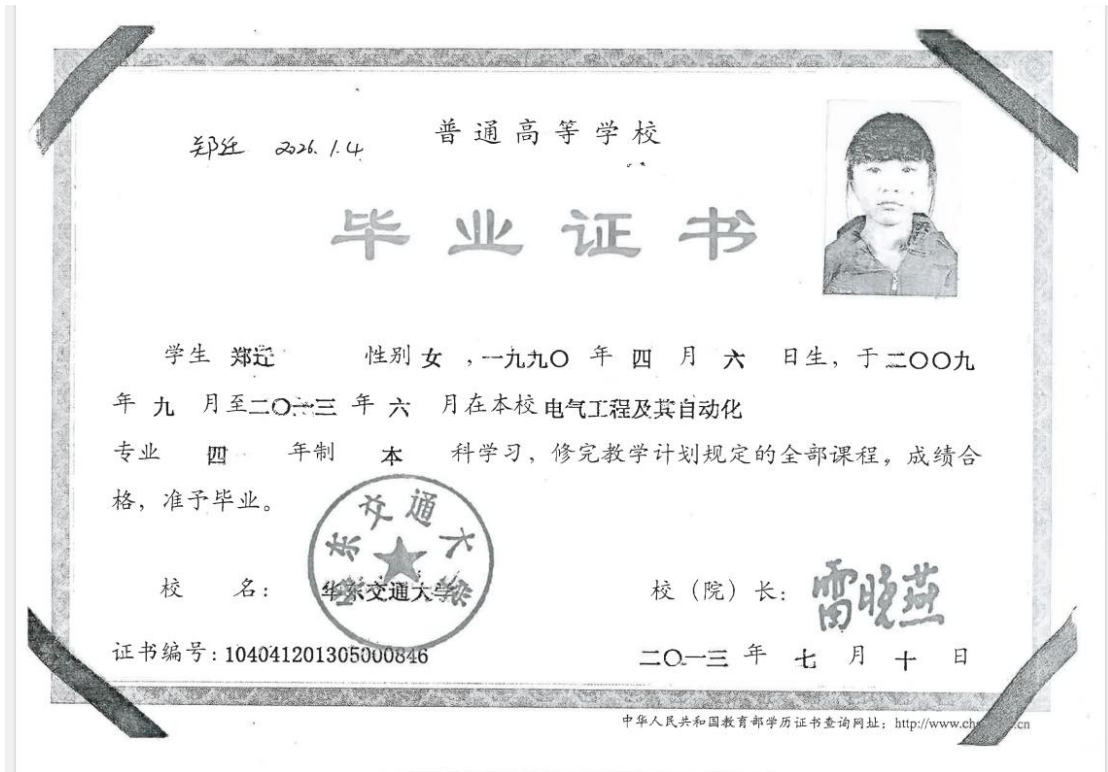 普通高等学校
郑迁 2026.1.4
毕业证书
学生 郑迁 性别 女 ,一九九〇 年 四 月 六 日生，于二〇〇九
年 九 月至二〇一三 年 六 月在本校 电气工程及其自动化
专业 四 年制 本 科学习，修完教学计划规定的全部课程，成绩合
格，准予毕业。
华东交通大学
校 名： 华东交通大学 校（院）长： 雷晓燕
证书编号：104041201305000846 二〇一三 年 七 月 十 日
中华人民共和国教育部学历证书查询网址：http://www.ch
.cn